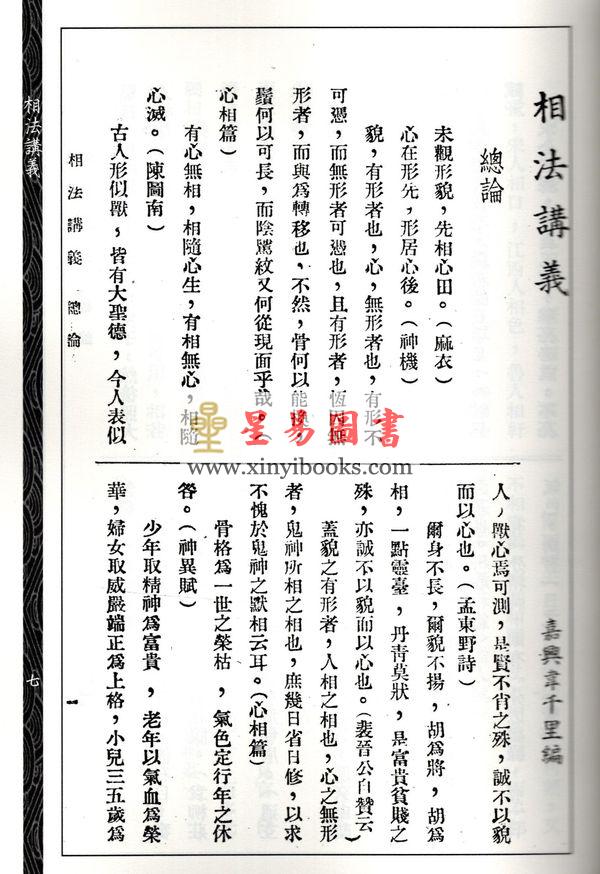 相法講義
嘉興韋千里編
總論
未觀形貌，先相心田。（麻衣）
心在形先，形居心後。（神機）
貌，有形者也，心，無形者也，有形不
可憑，而無形者可憑也，且有形者，恆因無
形者，而與爲轉移也，不然，骨何以能換，
鬚何以可長，而陰騭紋又何從現面乎哉。（
心相篇）
有心無相，相隨心生，有相無心，相隨
心滅。（陳圖南）
古人形似獸，皆有大聖德，今人表似
人，獸心焉可測，是賢不肖之殊，誠不以貌
而以心也。（孟東野詩）
爾身不長，爾貌不揚，胡爲將，胡爲
相，一點靈臺，丹靑莫狀，是富貴貧賤之
殊，亦誠不以貌而以心也。（裴晉公自贊云）
蓋貌之有形者，人相之相也，心之無形
者，鬼神所相之相也，庶幾日省日修，以求
不愧於鬼神之默相云耳。（心相篇）
骨格爲一世之榮枯，氣色定行年之休
咎。（神異賦）
少年取精神爲富貴，老年以氣血爲榮
華，婦女取威嚴端正爲上格，小兒三五歲爲
相法講義　總論
一
相法講義
七
星易圖書
www.xinyibooks.com